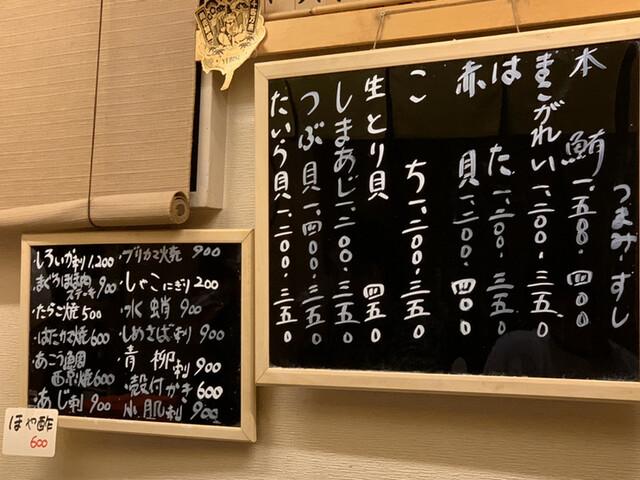 つまみ・すし
本鮪 一、五〇〇・四〇〇
まこがれい 一、二〇〇・三五〇
はた 一、二〇〇・三五〇
赤貝 一、二〇〇・四〇〇
こち 一、二〇〇・三五〇
生とり貝 四五〇
しまあじ 一、二〇〇・三五〇
つぶ貝 一、四〇〇・三五〇
たいら貝 一、二〇〇・三五〇
・しろいか刺 1,200
・まぐろほほ肉ステーキ 900
・たらこ焼 500
・はたカマ焼 600
・あこう鯛西京焼 600
・あじ刺 900
・ブリカマ焼 900
・しゃこにぎり 200
・水蛸 900
・しめさば刺 900
・青柳刺 900
・殻付かき 600
・小肌刺 900
ほや酢
600